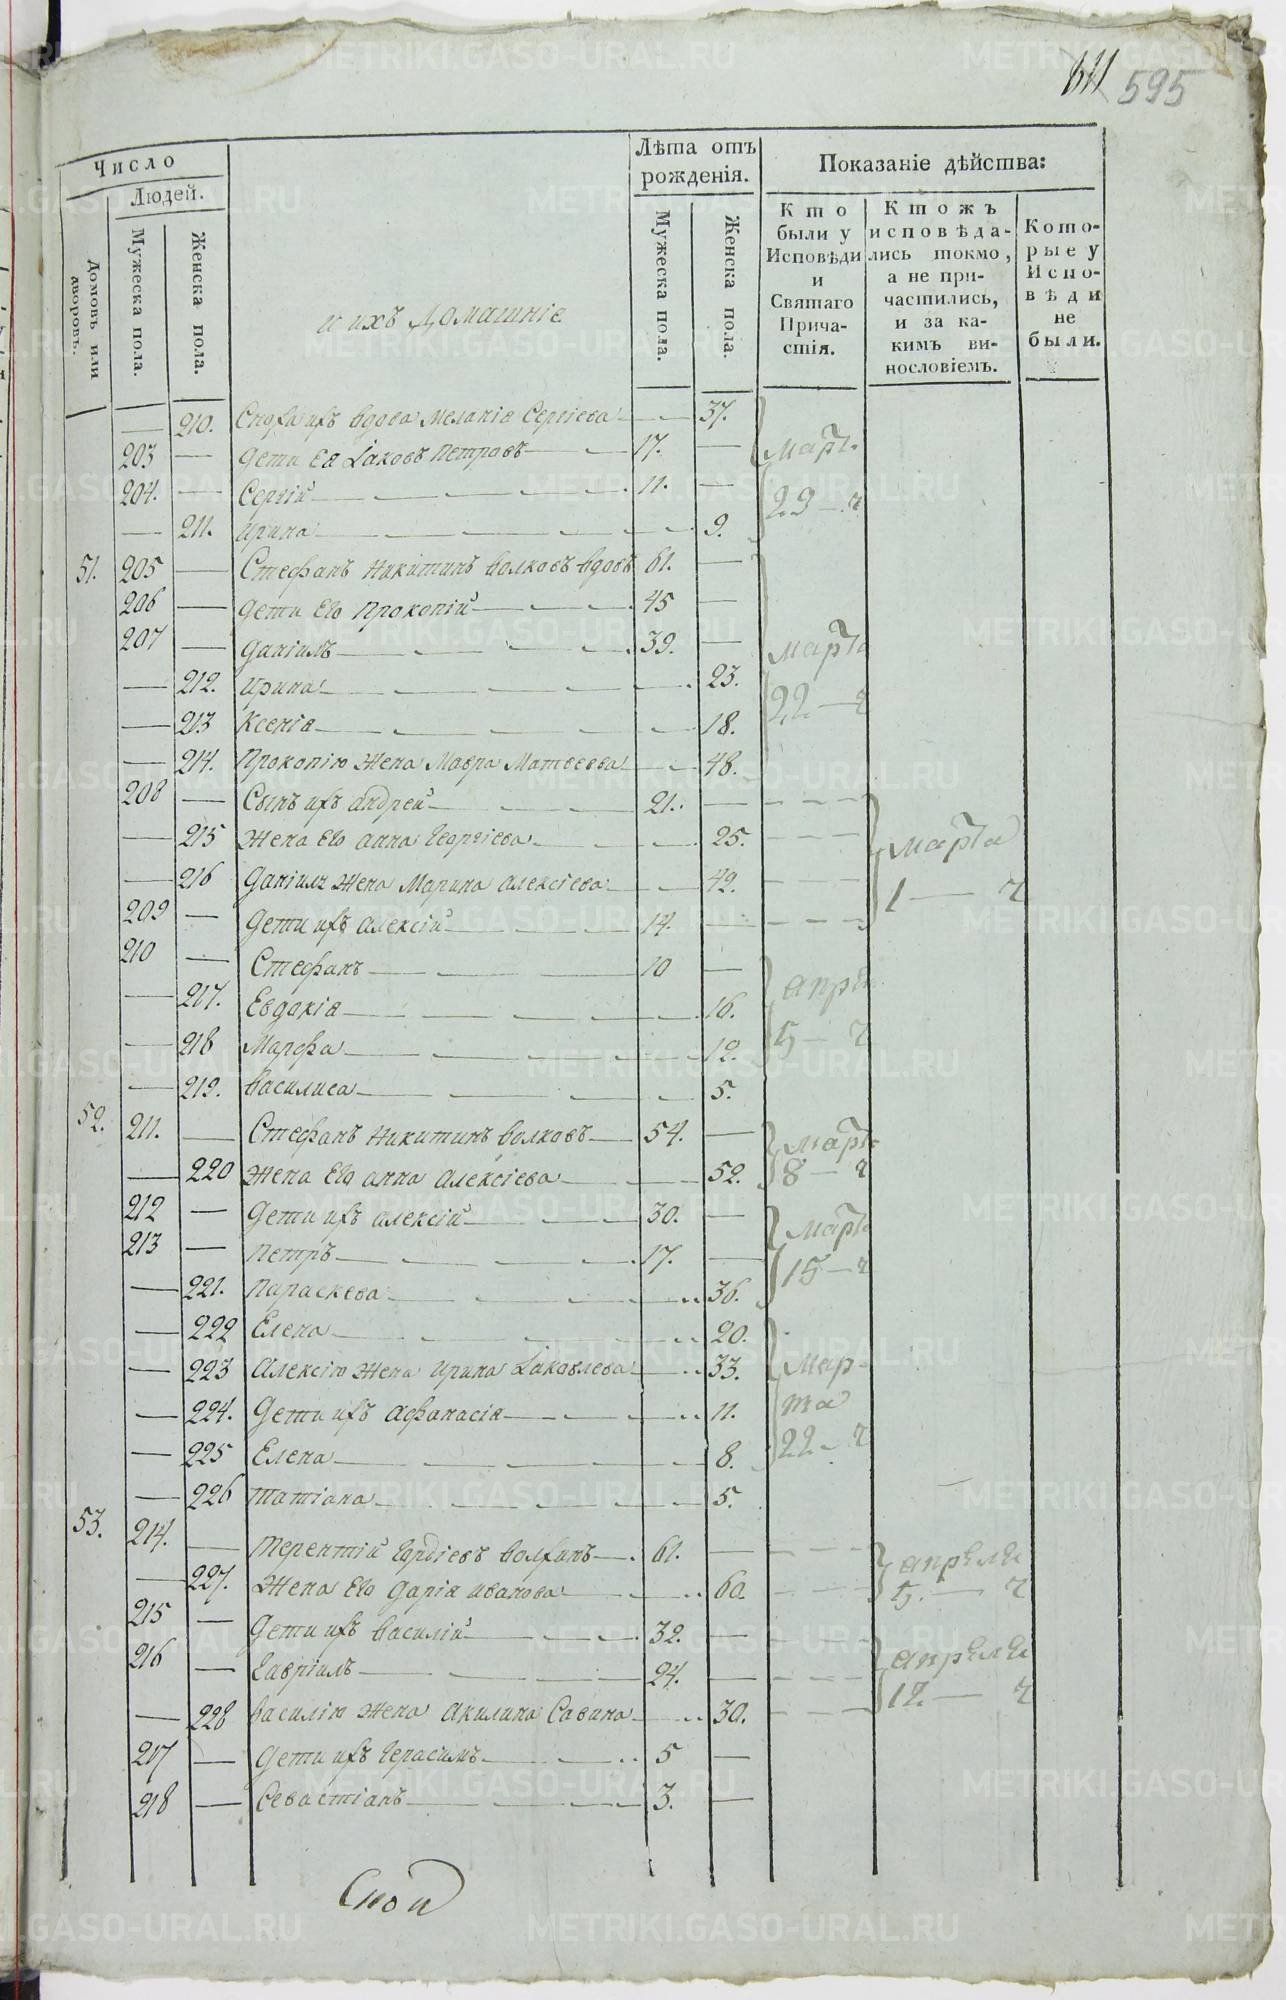 595
Число
Людей.
Домовъ или дворовъ.
Мужеска пола.
Женска пола.
и ихъ домашніе
Лѣта отъ рожденія.
Мужеска пола.
Женска пола.
Показаніе дѣйства:
Кто были у Исповѣди и Святаго Причастія.
Ктожъ исповѣдались токмо, а не причастились, и за какимъ винословіемъ.
Которые у Исповѣди не были.
— 210. Сноха ихъ вдова Меланія Сергіева — 37.
203 — Дети Ея Іаковъ Петровъ 17. — Марта
204. — Сергій 11. — 23 — ч
— 211. Ирина — 9.
51. 205 — Стефанъ Никитинъ Волковъ вдовъ 61. —
206 — Дети Его Прокопій 45 —
207 — Даніилъ 39. — Марта
— 212. Ирина — 23. 22 — ч
— 213 Ксенія — 18.
— 214. Прокопію Жена Мавра Матвеева — 48.
208 — Сынъ ихъ Андрей 21. —
— 215 Жена Его Анна Георгіева — 25. Марта
— 216 Даніилу Жена Марина Алексіева — 42. 1 — ч
209 — Дети ихъ Алексій 14. —
210 — Стефанъ 10 — Апре
— 217. Евдокія — 16.
— 218 Марфа — 12. 5 — ч
— 219. Василиса — 5.
52. 211. — Стефанъ Никитинъ Волковъ 54. — Марта
— 220 Жена Его Анна Алексіева — 52. 8 — ч
212 — Дети ихъ Алексій 30. — Марта
213 — Петръ 17. — 15 — ч
— 221. Параскева — 36.
— 222 Елена — 20.
— 223 Алексію Жена Ирина Іаковлева — 33. Мар-
— 224. Дети ихъ Афанасія — 11. та
— 225 Елена — 8. 22 — ч
— 226 Татіана — 5.
53. 214. — Терентій Гордіевъ 61. — Апреля
— 227. Жена Его Дарія Иванова — 60. 5. — ч
215 — Дети ихъ Василій 32. —
216 — Гавріилъ 24. — Апреля
— 228 Василію Жена Акилина Савина — 30. 12. — ч
217 — Дети ихъ Герасимъ 5 —
218 — Севастіанъ 3. —
METRIKI.GASO-URAL.RU